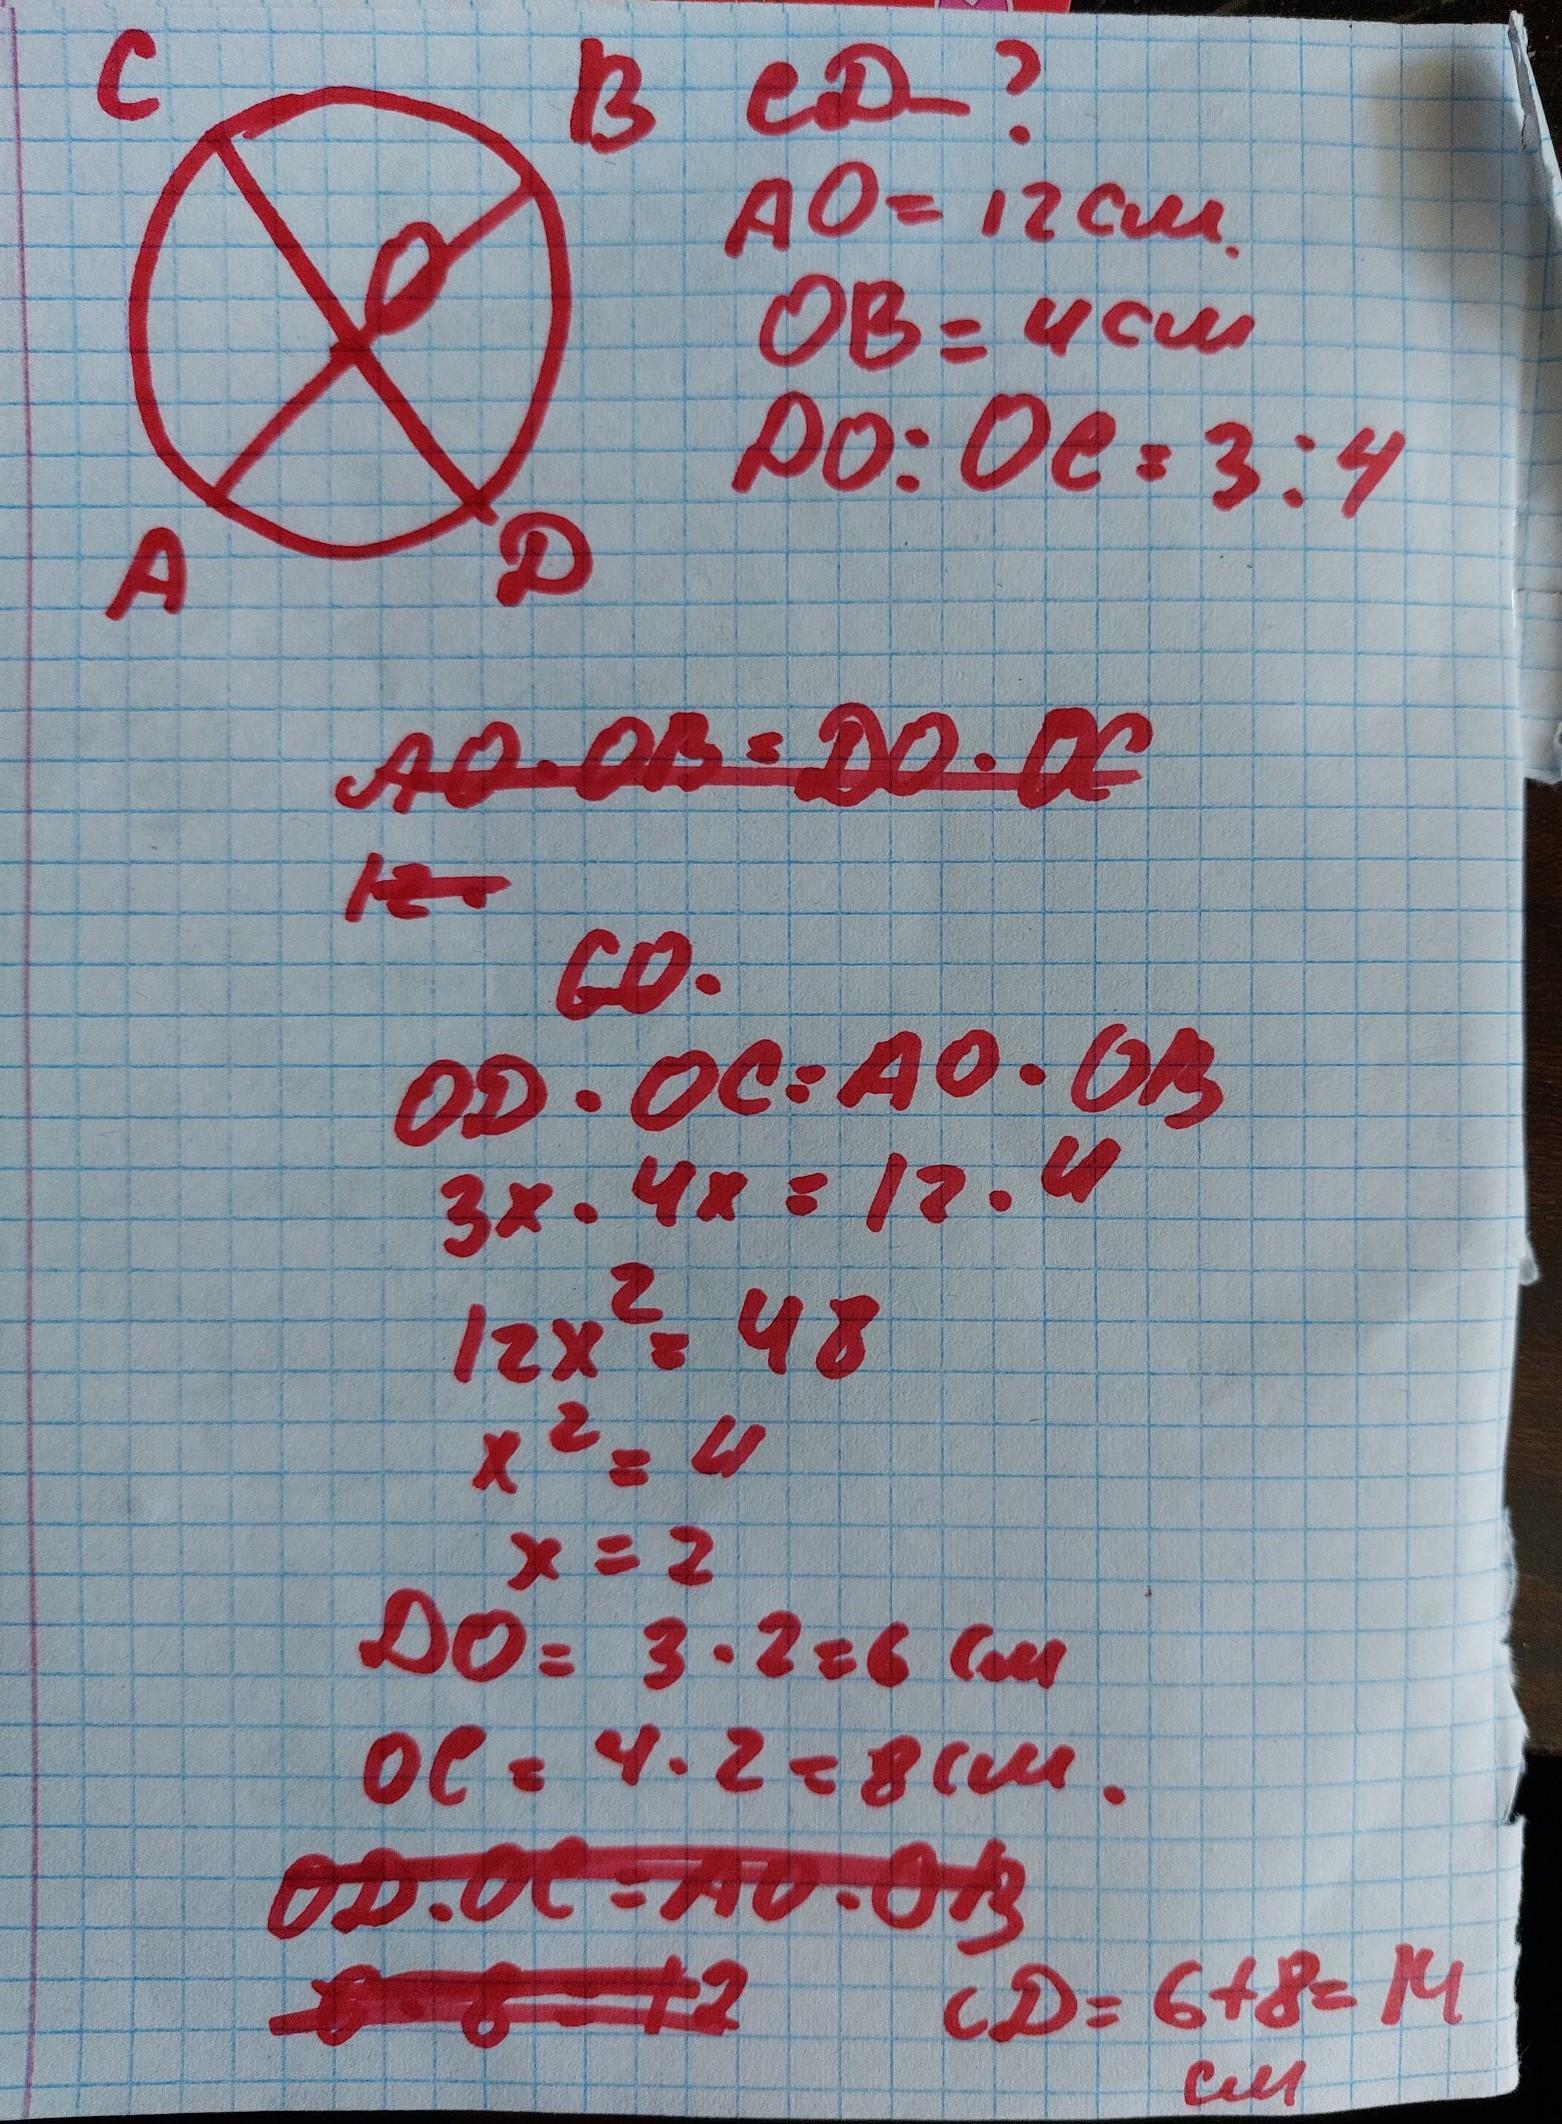 C B CD - ?
O
AO = 12 см.
OB = 4 см
DO : OC = 3 : 4
A D
AO · OB = DO · OC
12 ·
CO.
OD · OC = AO · OB
3x · 4x = 12 · 4
12x² = 48
x² = 4
x = 2
DO = 3 · 2 = 6 см
OC = 4 · 2 = 8 см.
OD · OC = AO · OB
CD = 6 + 8 = 14
см